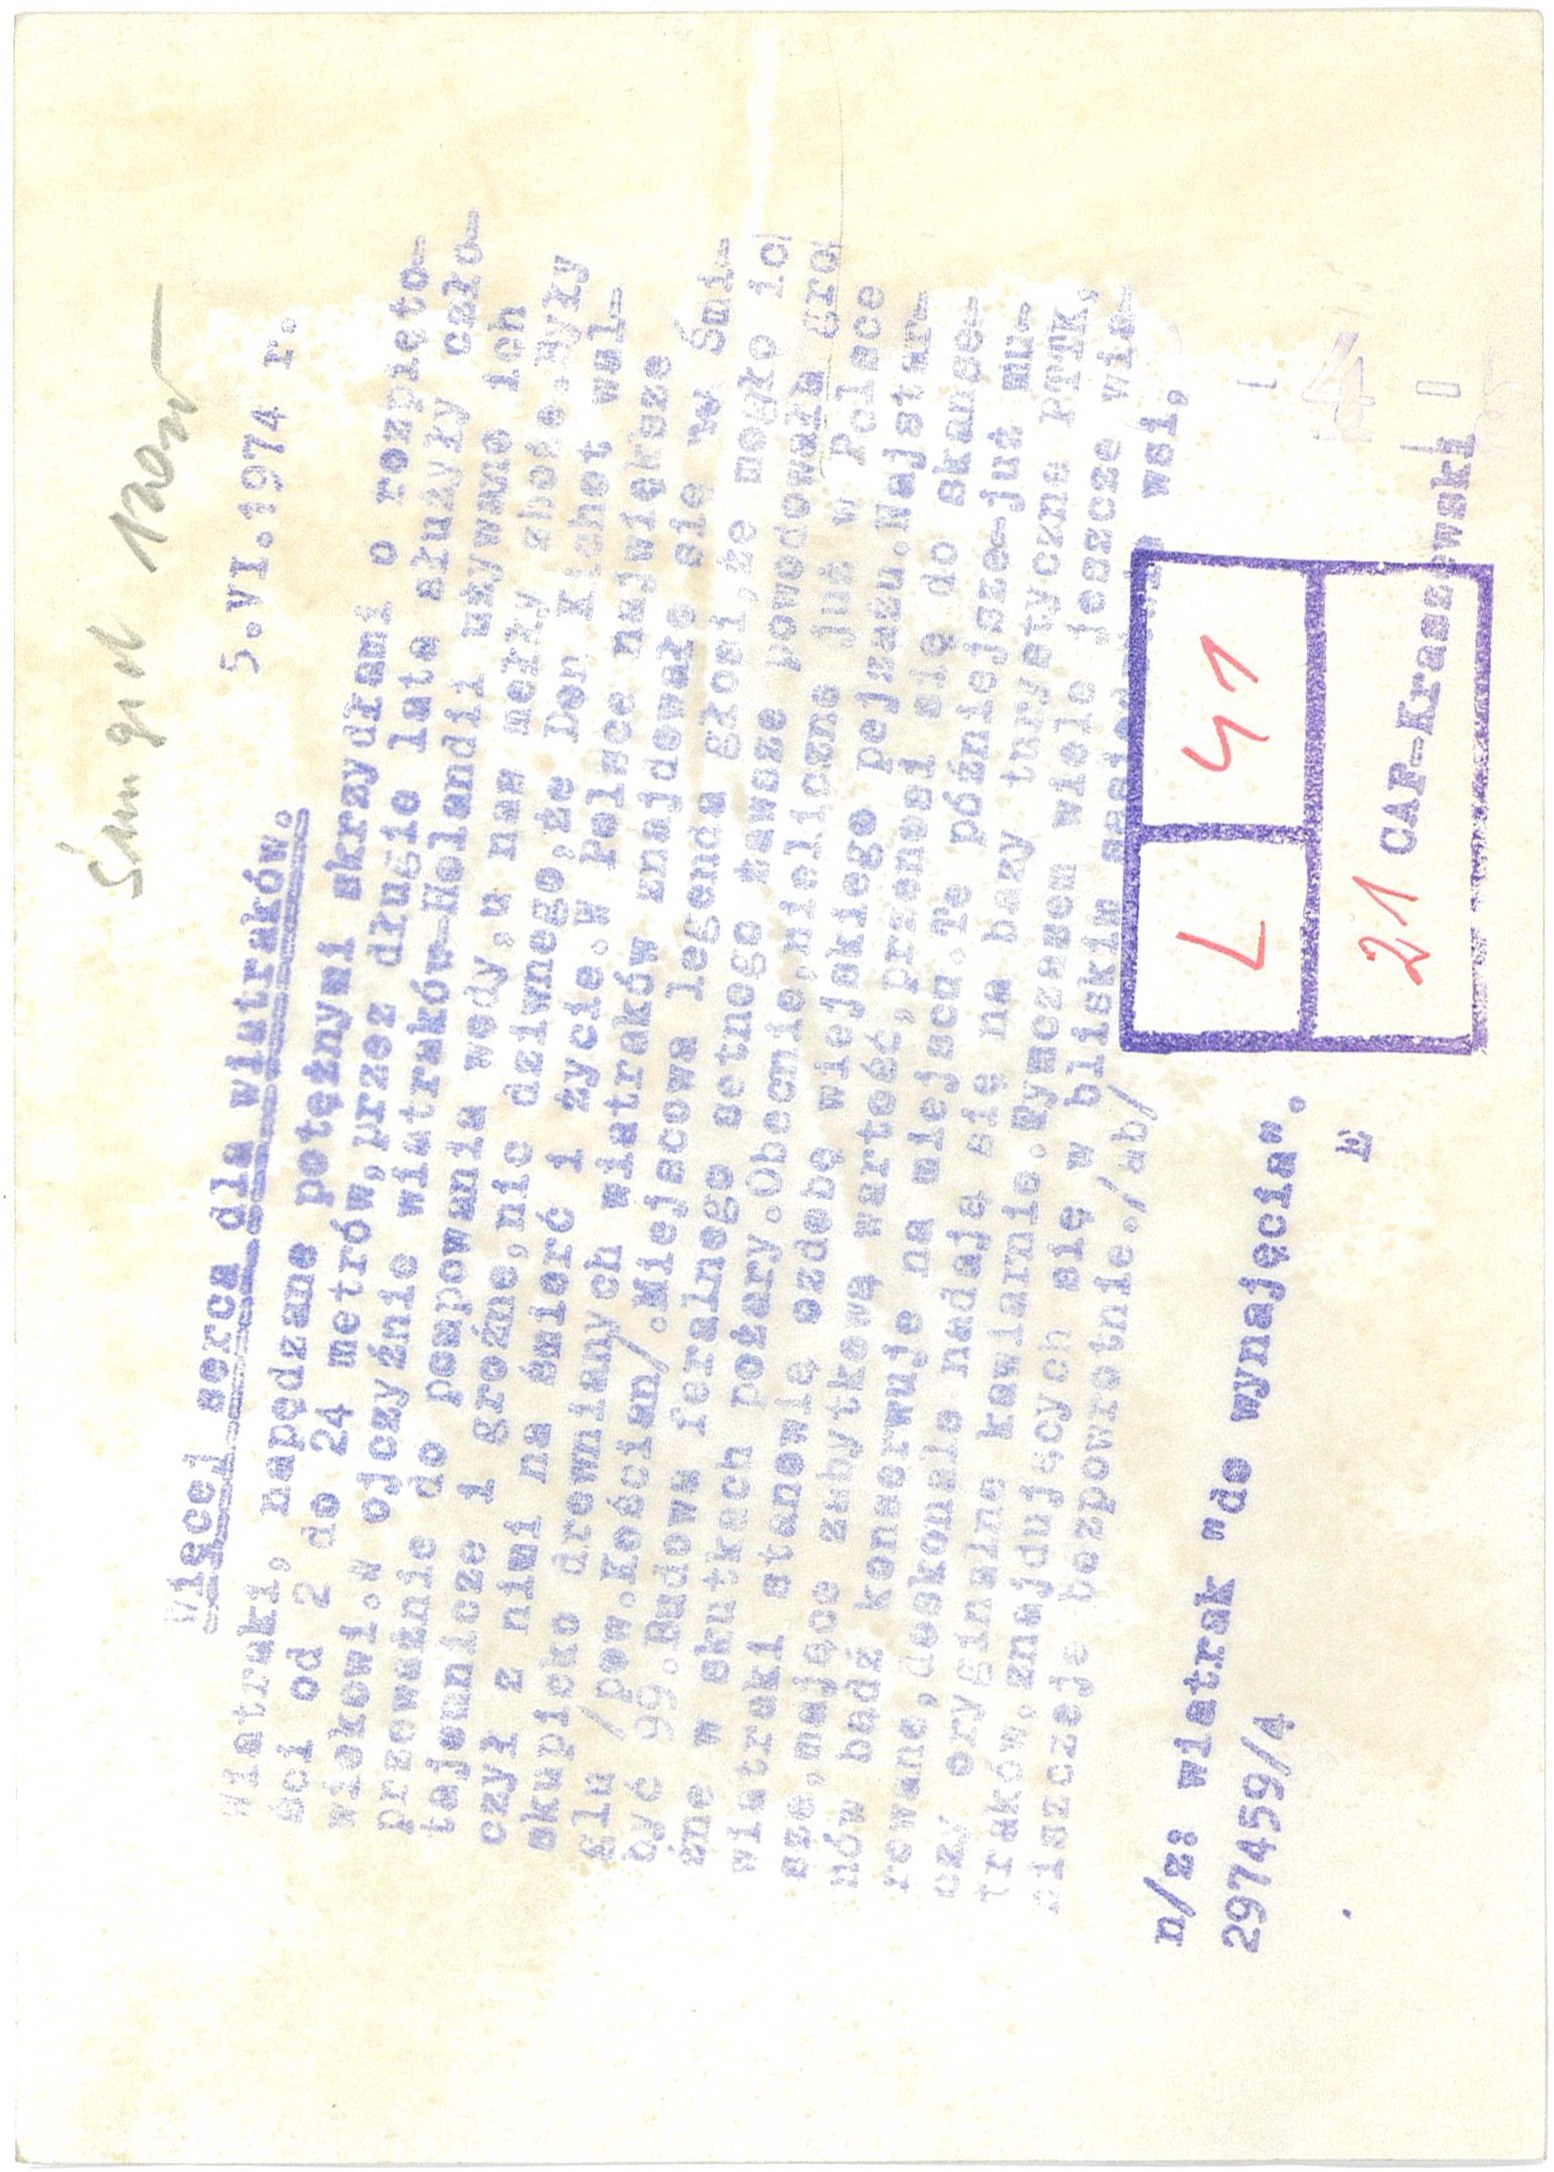 Śmigiel pow
5.VI.1974 r.
Więcej serca dla wiatraków.
Wiatraki, napędzane potężnymi skrzydłami o rozpięto-
ści od 2 do 24 metrów,przez długie lata służyły czło-
wiekowi.W ojczyźnie wiatraków-Holandii używano ich
przeważnie do pompowania wody,u nas mełły zboże.Były
tajemnicze i groźne,nic dziwnego,że Don Kichot wal-
czył z nimi na śmierć i życie.W Polsce największe
skupisko drewnianych wiatraków znajdowało się w Śmi-
glu /pow.Kościan/.Miejscowa legenda głosi,że mogło ic
być 99.Budowa feralnego setnego zawsze powodowała gro
źne w skutkach pożary.Obecnie,nieliczne już w Polsce
wiatraki stanowią ozdobę wiejskiego pejzażu.Najstar-
sze,mające zabytkową wartość,przenosi się do skanse-
nów bądź konserwuje na miejscu.Te późniejsze-już mu-
rowane,doskonale nadają się na bazy turystyczne PTTK,
czy oryginalne kawiarnie.Tymczasem wiele jeszcze wia-
traków,znajdujących się w bliskim sąsiedztwie wsi,
niszczeje bezpowrotnie./ab/
n/z: wiatrak "do wynajęcia".
297459/4
E
L 41
21 CAF-Kraszewski
4